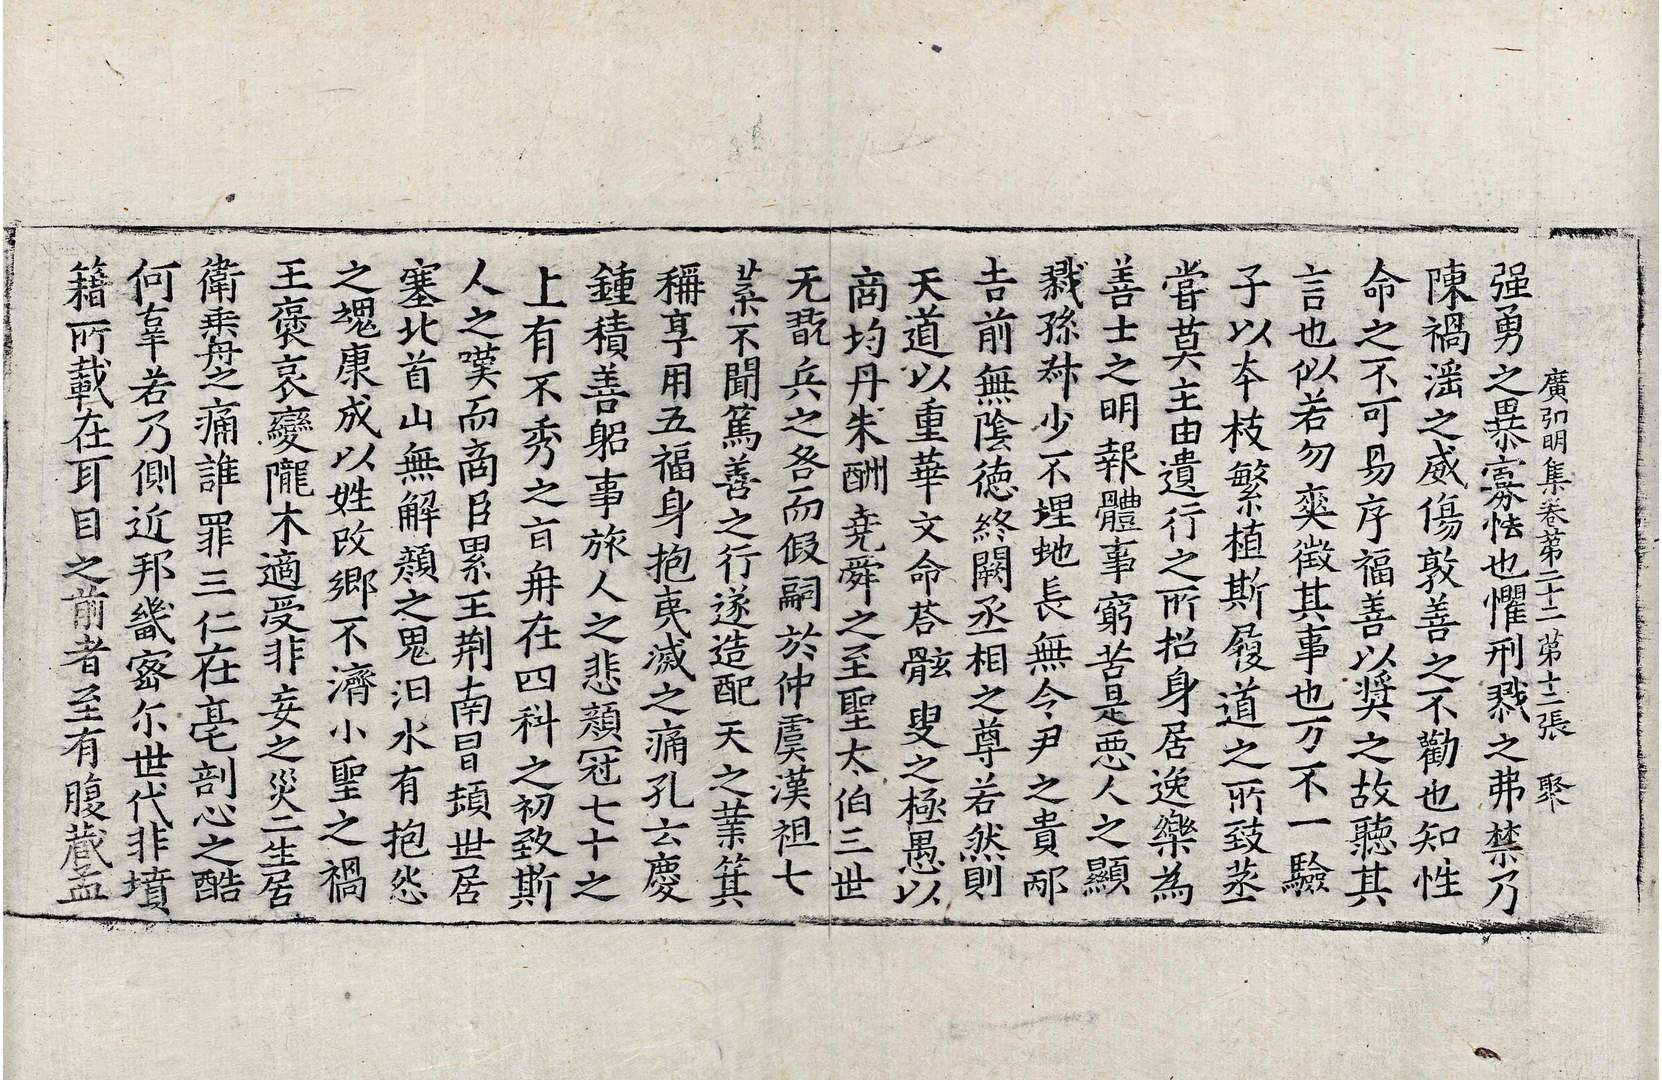 廣弘明集卷第二十二 第十二張 聚
强勇之暴寡怯也懼刑戮之弗禁乃
陳禍滛之威傷敦善之不勸也知性
命之不可易序福善以奨之故聽其
言也似若勿爽徵其事也万不一驗
子以夲枝繁植斯履道之所致蒸
嘗莫主由遺行之所招身居逸樂為
善士之明報體事窮苦是惡人之顯
戮孫叔少不埋虵長無令尹之貴邴
吉前無陰徳終闕丞相之尊若然則
天道以重華文命荅骸叟之極愚以
商均丹朱酬堯舜之至聖太伯三世
无翫兵之咎而假嗣於仲虞漢祖七
葉不聞篤善之行遂造配天之業箕
稱享用五福身抱夷滅之痛孔云慶
鍾積善躬事旅人之悲顔冠七十之
上有不秀之旨冉在四科之初致斯
人之嘆而商臣累王荆南冒頓世居
塞北首山無解顔之鬼汨水有抱怨
之塊康成以姓改鄉不濟小聖之禍
王褒哀變隴木適受非妄之災二生居
衛乗舟之痛誰罪三仁在亳剖心之酷
何辜若乃側近邦畿宻尔世代非墳
籍所載在耳目之前者至有腹藏孟